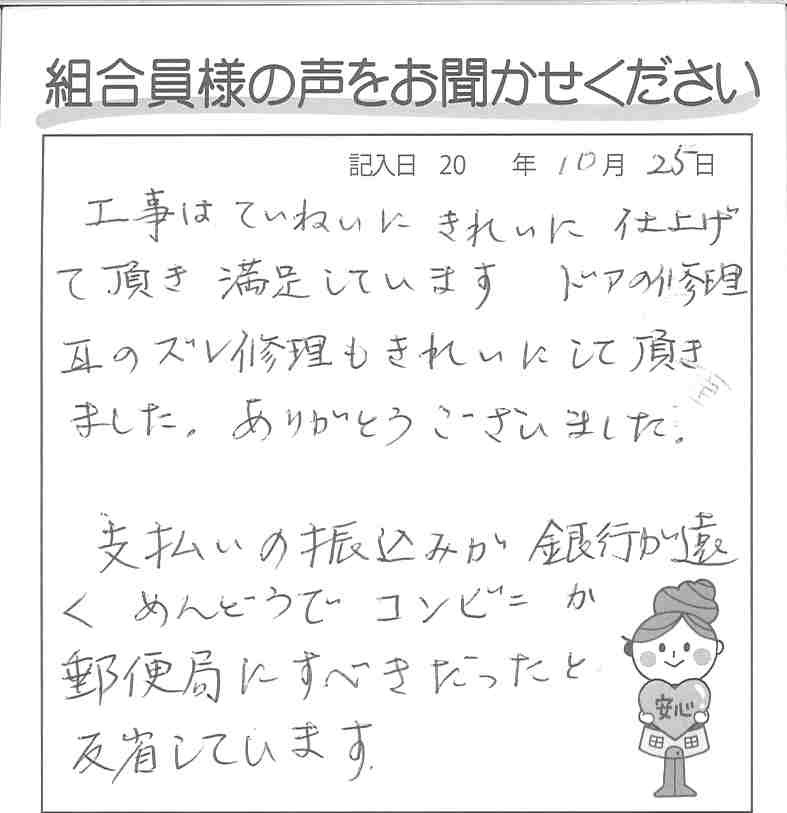 組合員様の声をお聞かせください
記入日 20 年 10月 25日
工事は ていねいに きれいに 仕上げ
て頂き 満足しています ドアの修理
瓦のズレ修理もきれいにして頂き
ました。ありがとうございました。
支払いの振込みが 銀行が遠
く めんどうで コンビニ か
郵便局にすべきだったと
反省しています。
安心